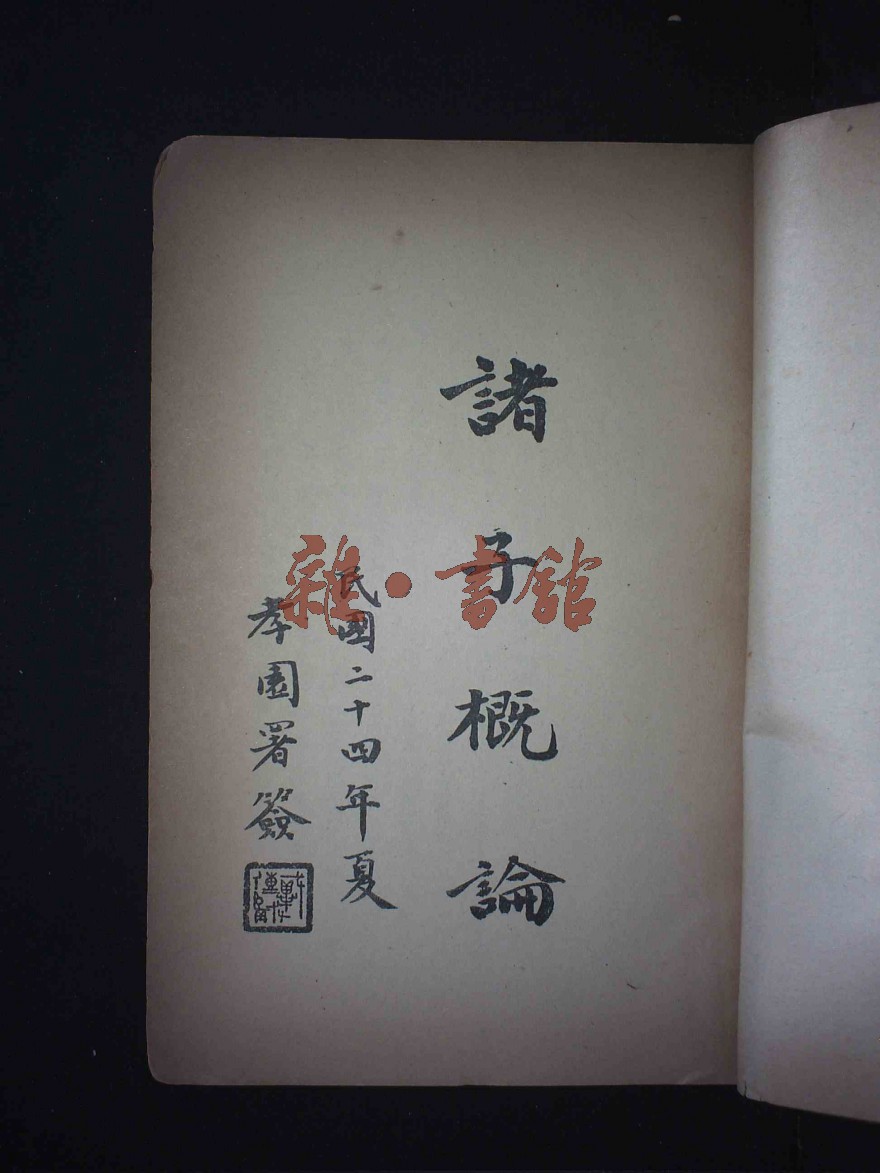 諸子概論
民國二十四年夏
孝園署簽
雜·書館